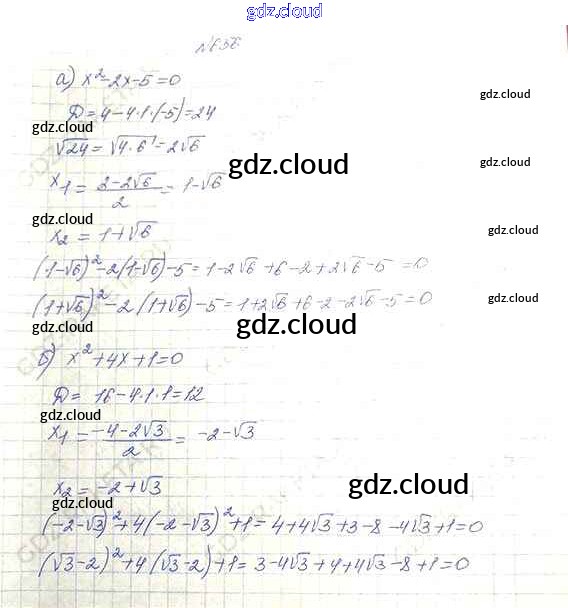 gdz.cloud
№656
а) x² - 2x - 5 = 0
gdz.cloud
D = 4 - 4·1·(-5) = 24
gdz.cloud
gdz.cloud
√24 = √4·6 = 2√6
gdz.cloud
gdz.cloud
x₁ = (2 - 2√6)/2 = 1 - √6
gdz.cloud
x₂ = 1 + √6
gdz.cloud
(1-√6)² - 2(1-√6) - 5 = 1 - 2√6 + 6 - 2 + 2√6 - 5 = 0
(1+√6)² - 2·(1+√6) - 5 = 1 + 2√6 + 6 - 2 - 2√6 - 5 = 0
gdz.cloud
gdz.cloud
gdz.cloud
б) x² + 4x + 1 = 0
D = 16 - 4·1·1 = 12
gdz.cloud
x₁ = (-4 - 2√3)/2 = -2 - √3
x₂ = -2 + √3
gdz.cloud
gdz.cloud
(-2-√3)² + 4(-2-√3)² + 1 = 4 + 4√3 + 3 - 8 - 4√3 + 1 = 0
(√3-2)² + 4(√3-2) + 1 = 3 - 4√3 + 4 + 4√3 - 8 + 1 = 0